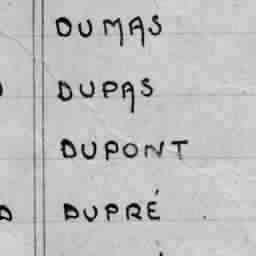 DUMAS
DUPAS
DUPONT
DUPRÉ